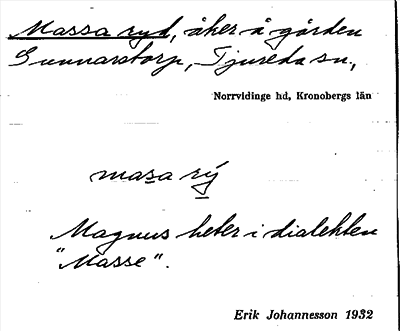 Massa ryd, åker å gården
Gunnarstorp, Tjureda sn.,
Norrvidinge hd, Kronobergs län
masa rý
Magnus heter i dialekten
"Masse".
Erik Johannesson 1932